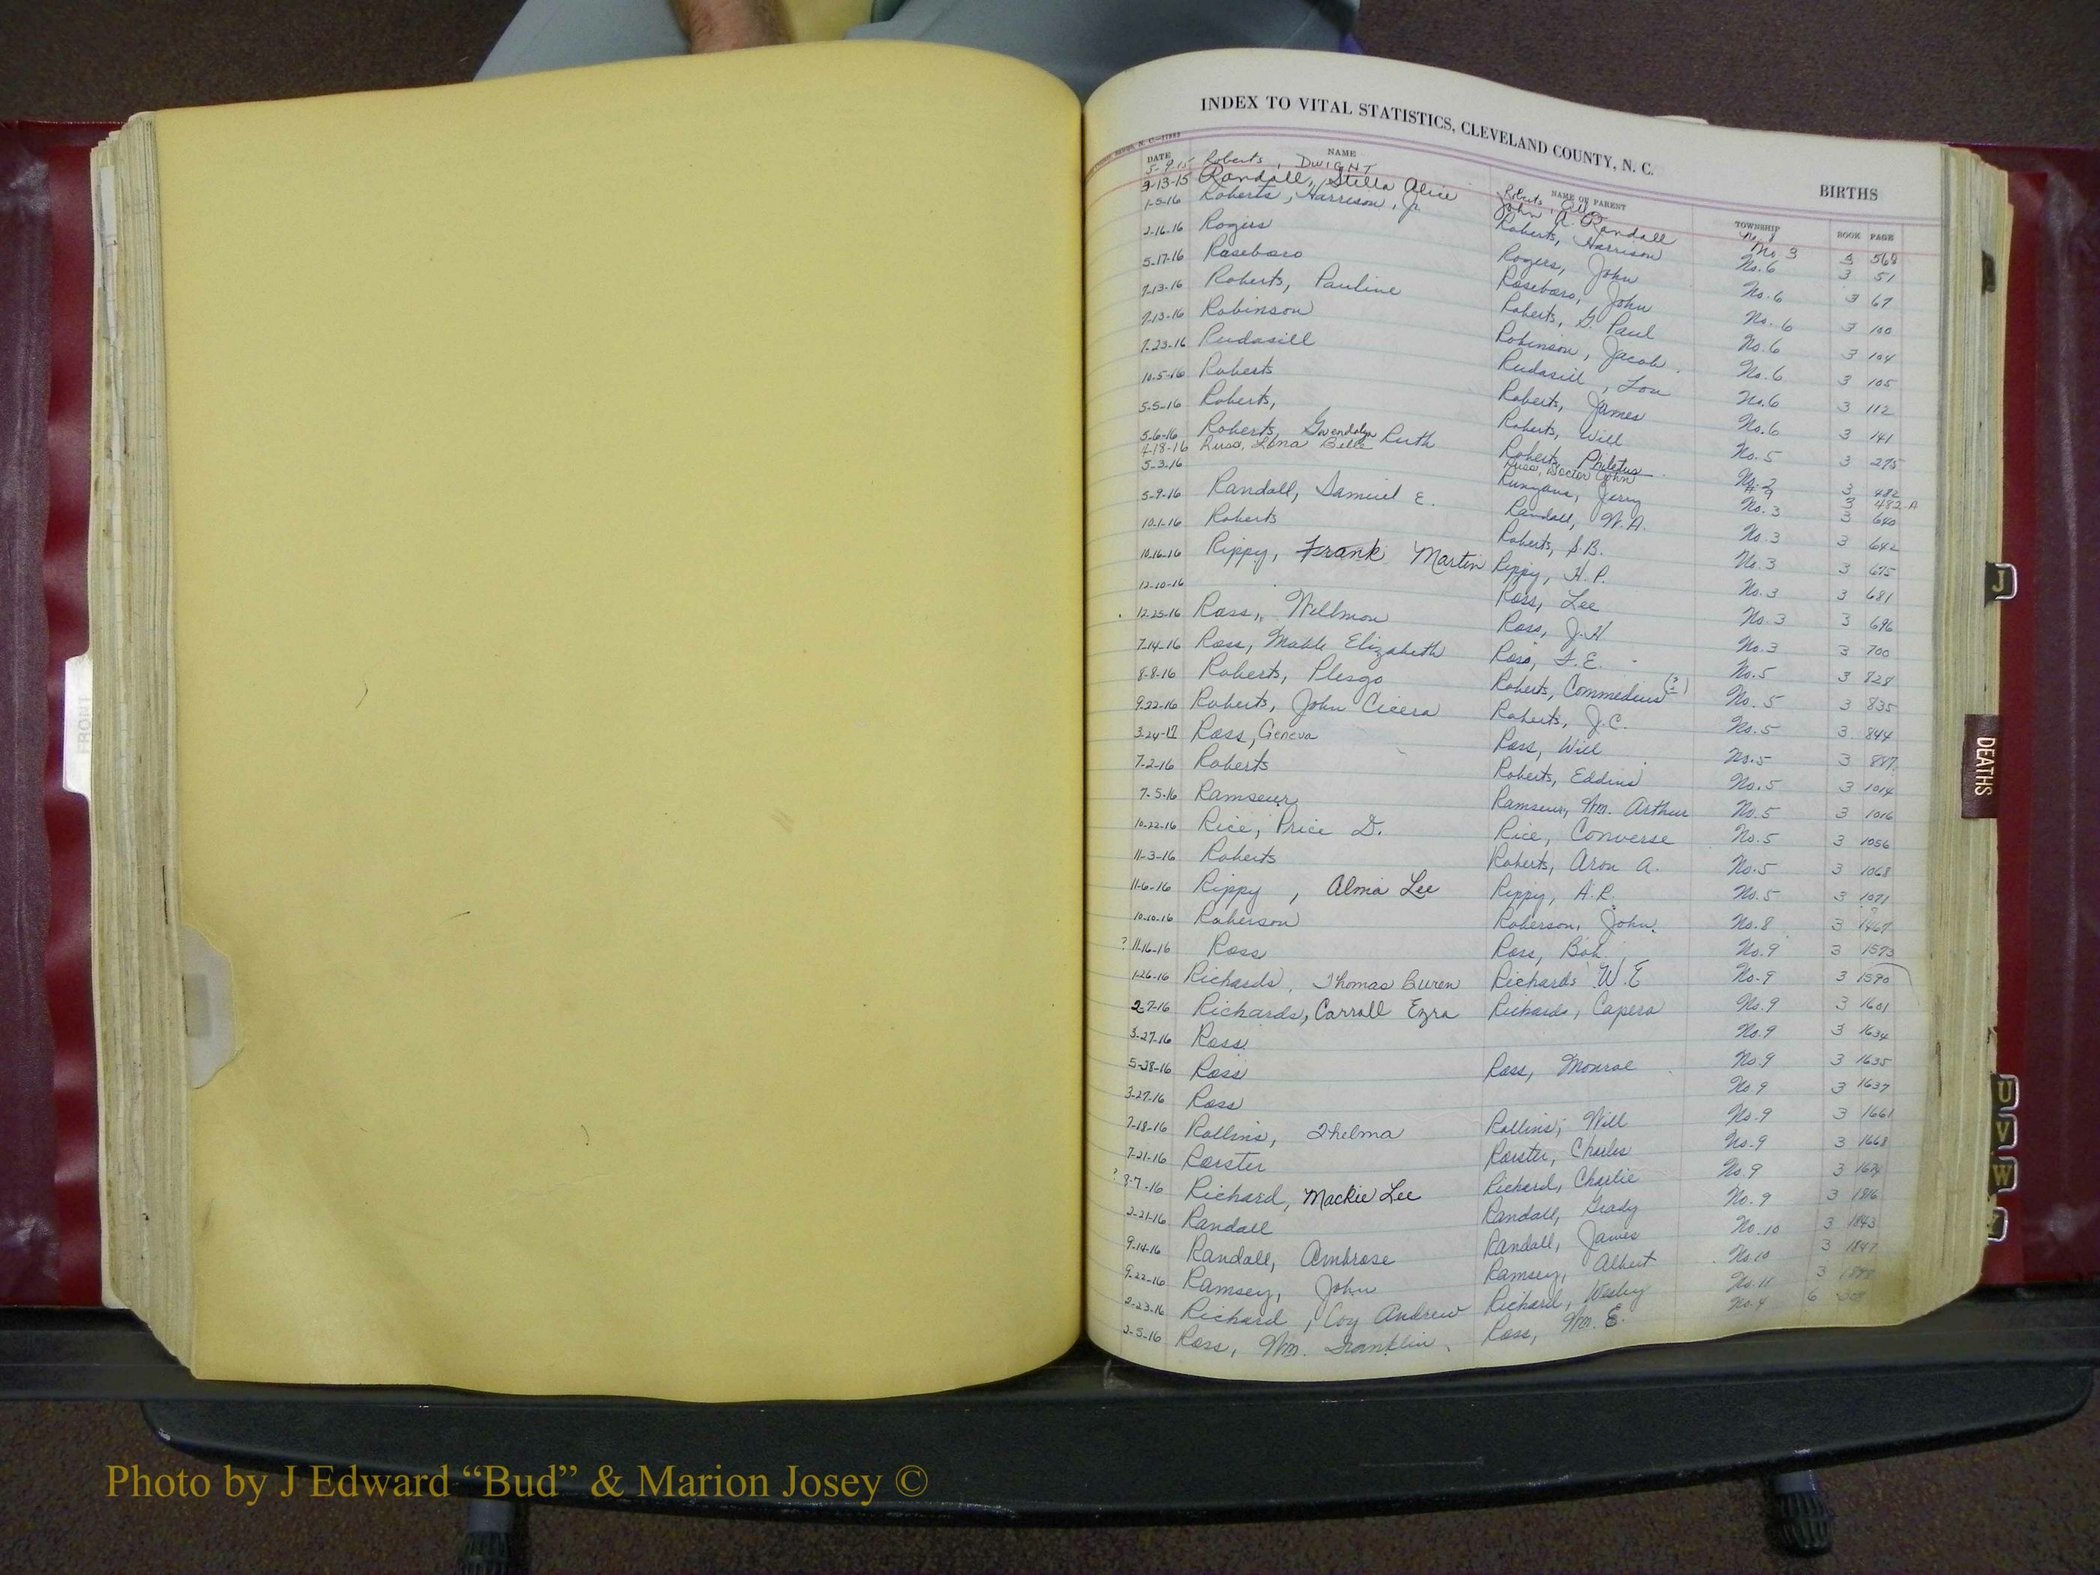 INDEX TO VITAL STATISTICS, CLEVELAND COUNTY, N. C.
BIRTHS
DATE NAME NAME OF PARENT TOWNSHIP BOOK PAGE
5-9-15 Roberts, DWIGHT Roberts,
3-13-15 Randall, Stella Alice John A. Randall No. 3 3 568
1-5-16 Roberts, Harrison, Jr Roberts, Harrison No. 6 3 51
2-16-16 Rogers Rogers, John No. 6 3 67
5-17-16 Roseboro Roseboro, John No. 6 3 100
7-13-16 Roberts, Pauline Roberts, G. Paul No. 6 3 104
7-13-16 Robinson Robinson, Jacob No. 6 3 105
7-23-16 Rudasill Rudasill, Lou No. 6 3 112
10-5-16 Roberts Roberts, James No. 6 3 141
5-5-16 Roberts, Roberts, Will No. 5 3 275
5-6-16 Roberts, Gwendolyn Ruth Roberts, Philetus No. 2 3 482
4-18-16 Russ, Lona Belle Russ, Doctor John #9 3 482-A
5-3-16 Runyans, Jerry No. 3 3 640
5-9-16 Randall, Samuel E. Randall, W. A. No. 3 3 642
10-1-16 Roberts Roberts, S. B. No. 3 3 675
10-16-16 Rippy, Frank Martin Rippy, H. P. No. 3 3 681
12-10-16 Ross, Lee No. 3 3 696
12-25-16 Ross, Willmon Ross, J. H No. 3 3 700
7-14-16 Ross, Mable Elizabeth Ross, E. No. 5 3 828
8-8-16 Roberts, Plesgo Roberts, Commedius (?) No. 5 3 835
9-22-16 Roberts, John Cicero Roberts, J. C. No. 5 3 844
3-24-17 Ross, Geneva Ross, Will No. 5 3 887
7-2-16 Roberts Roberts, Eddins No. 5 3 1014
7-5-16 Ramseur Ramseur, Wm. Arthur No. 5 3 1016
10-22-16 Rice, Price D. Rice, Converse No. 5 3 1056
11-3-16 Roberts Roberts, Aron A. No. 5 3 1068
11-6-16 Rippy, Alma Lee Rippy, A. R. No. 5 3 1071
10-10-16 Roberson Roberson, John No. 8 3 1467
? 11-16-16 Ross Ross, Bob No. 9 3 1573
1-26-16 Richards, Thomas Buren Richards W. E No. 9 3 1590
2-7-16 Richards, Carroll Ezra Richards, Capero No. 9 3 1601
3-27-16 Ross No. 9 3 1634
5-28-16 Ross Ross, Monroe No. 9 3 1635
3-27-16 Ross No 9 3 1637
7-18-16 Rollins, Thelma Rollins, Will No. 9 3 1661
7-21-16 Rorster Rorster, Charles No. 9 3 1668
? 8-7-16 Richard, Mackie Lee Richard, Charlie No. 9 3 1674
2-21-16 Randall Randall, Grady No. 9 3 1816
9-14-16 Randall, Ambrose Randall, James No. 10 3 1843
9-22-16 Ramsey, John Ramsey, Albert No. 10 3 1847
2-23-16 Richard, Coy Andrew Richard, Wesley No. 11 3
2-5-16 Ross, Wm. Franklin Ross, Wm. E. No. 4 6
FRONT
J
DEATHS
U
V
W
Photo by J Edward “Bud” & Marion Josey ©